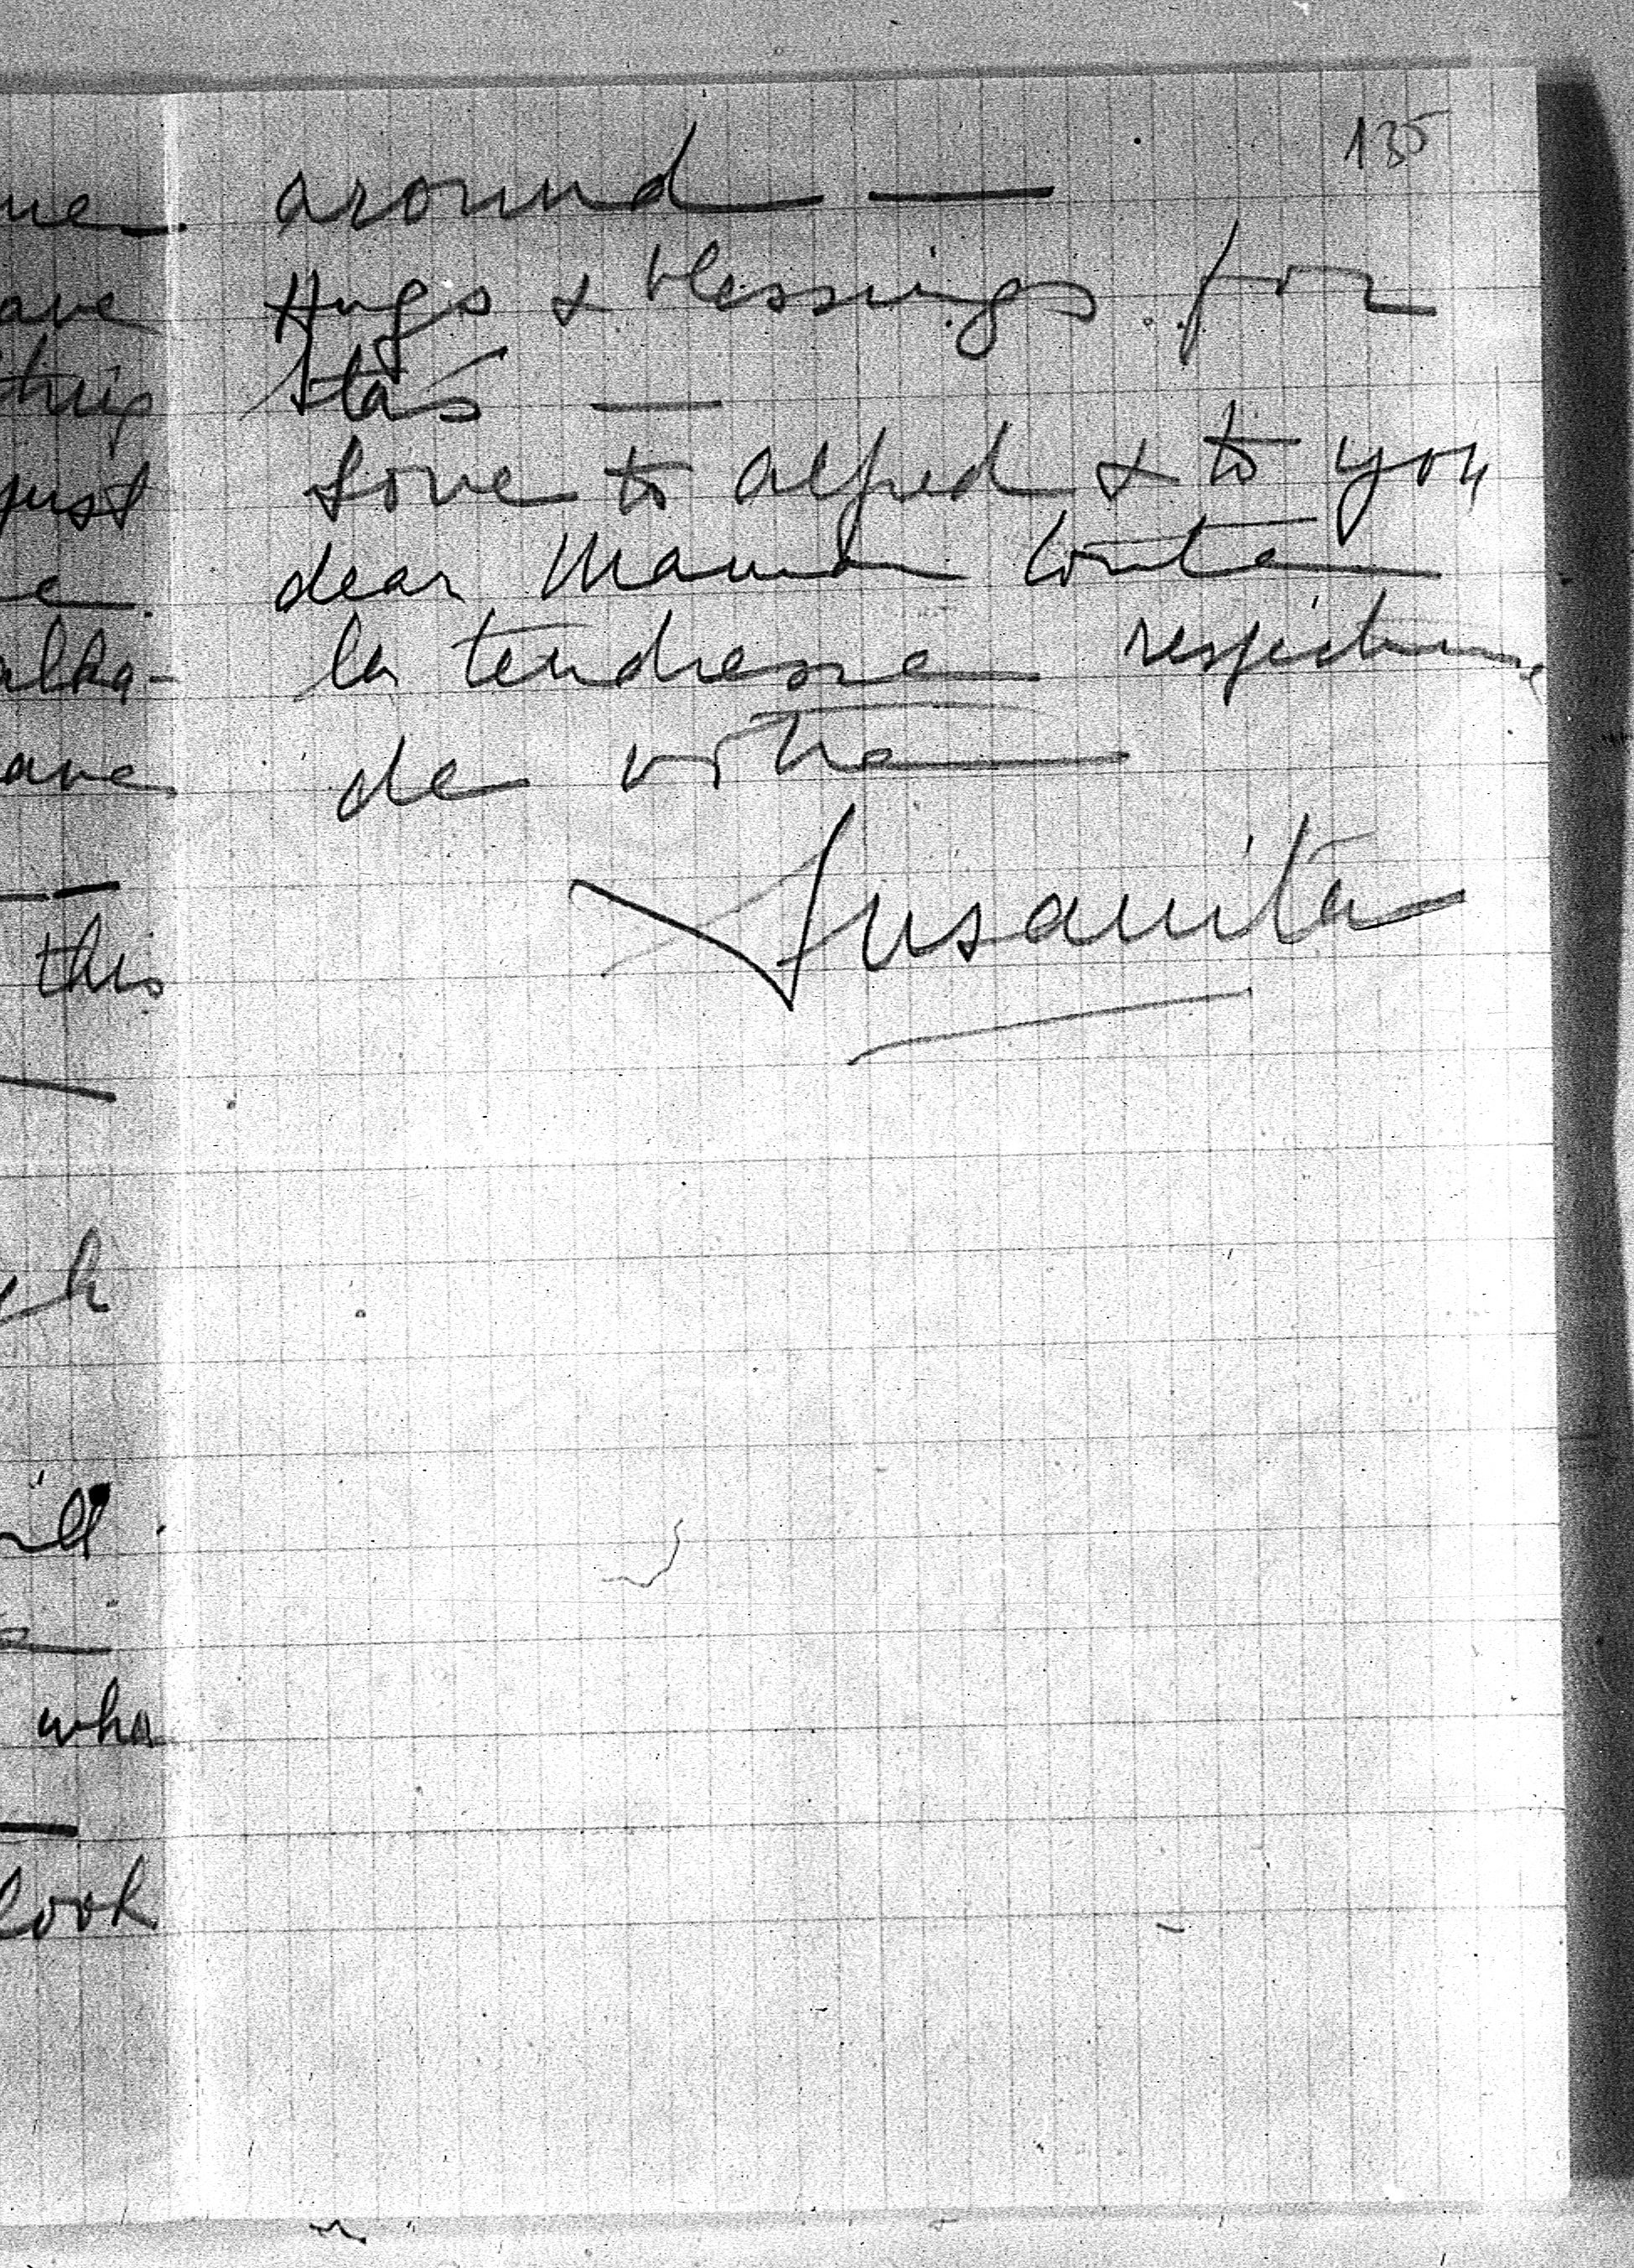 135
around —
Hugs & blessings for
Staś —
Love to Alfred & to you
dear Maman toute
la tendresse respectueuse
de votre
Susanita
ave
just
ave
this
who
look